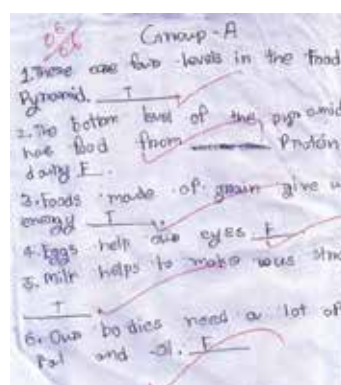 06
06
Group-A
1. These are four levels in the food
Pyramid. T
2. The bottom level of the pyramid
has food from Protein
dairy F.
3. Foods made of grain give u
energy T.
4. Eggs help our eyes F
5. Milk helps to make us stro
T.
6. Our bodies need a lot of
Fat and oil. F